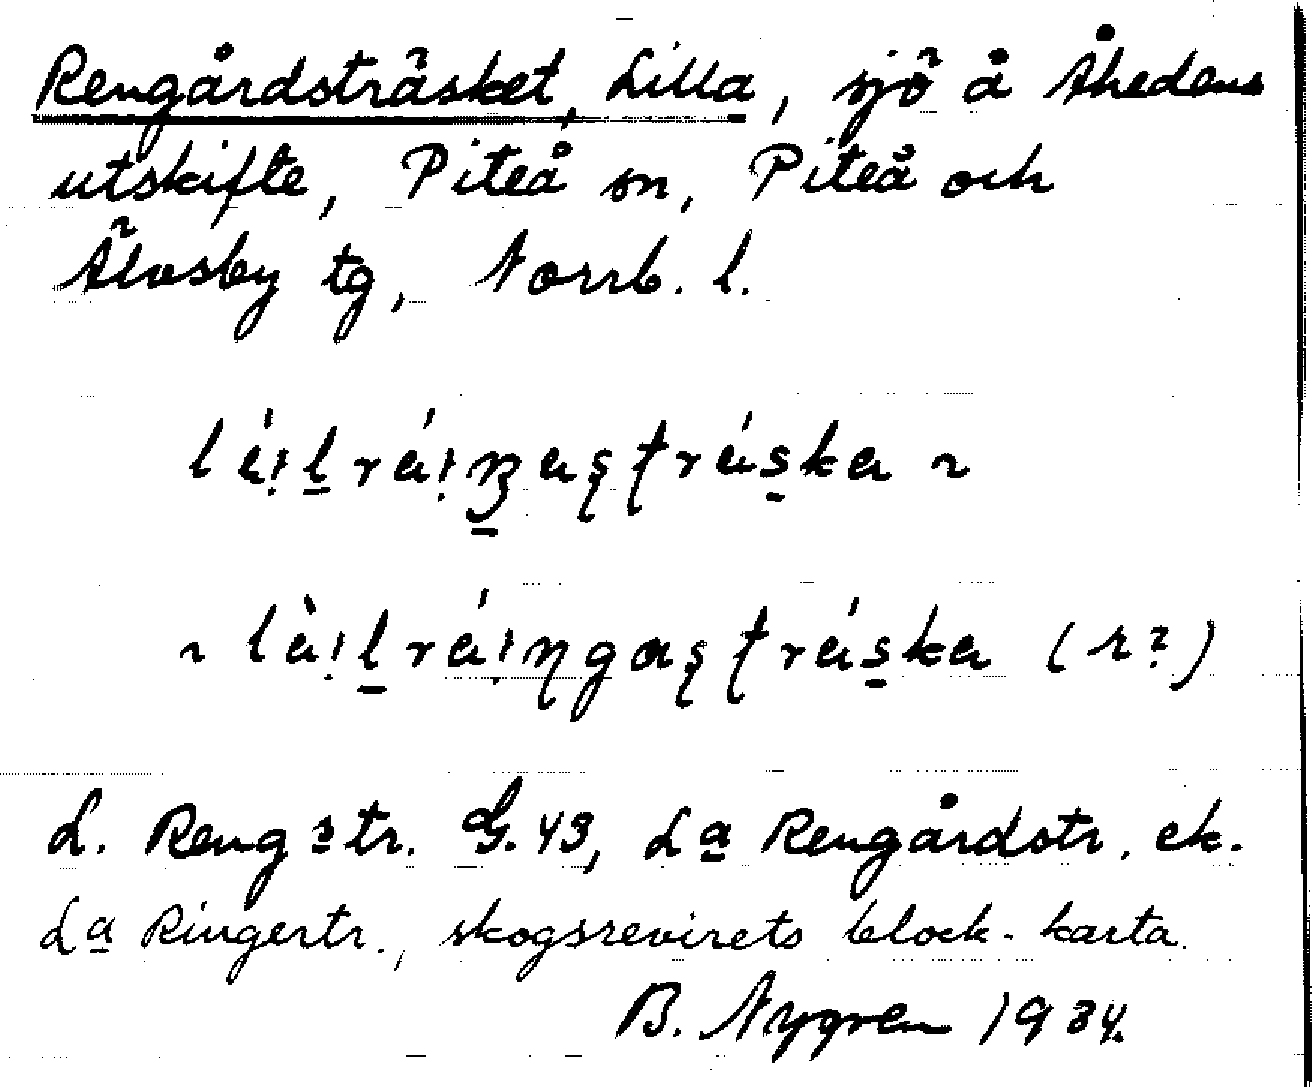 Rengårdsträsket, Lilla, sjö å Åhedens
utskifte, Piteå sn, Piteå och
Älvsby tg, Norrb. l.
L. Rengstr. G. 43, La Rengårdstr. ek.
La Ringertr., skogsrevirets block-karta.
B. Nygren 1934.